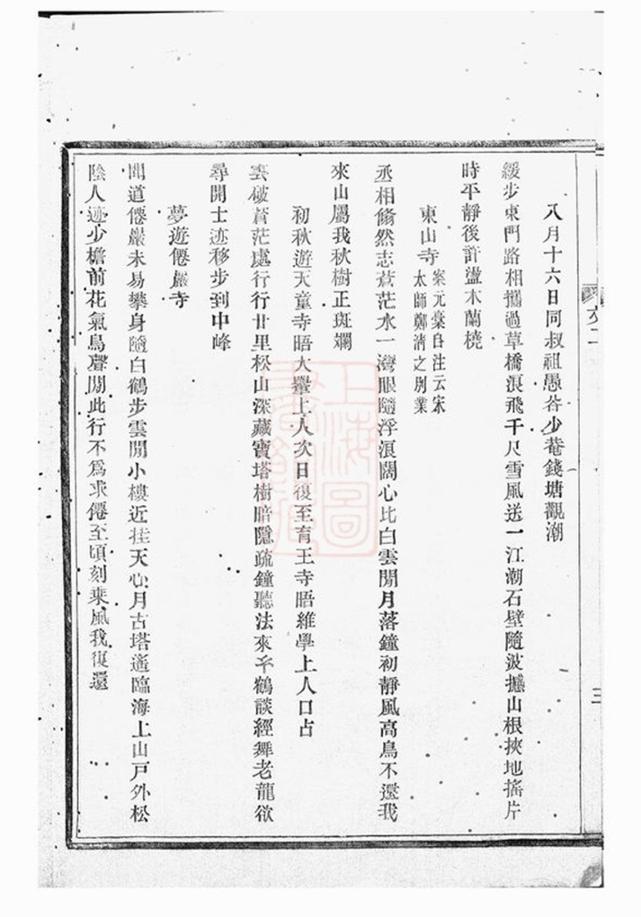 八月十六日同叔祖愚谷少菴錢塘觀潮
緩步東門路相攜過草橋浪飛千尺雪風送一江潮石壁隨波撼山根挾地搖片
時平靜後許盪木蘭橈
東山寺
案元藳自注云宋
太師鄭淸之別業
丞相翛然志蒼茫水一灣眼隨浮浪闊心比白雲閒月落鐘初靜風高鳥不還我
來山屬我秋樹正斑斕
初秋遊天童寺晤大䡖上人次日復至育王寺晤維學上人口占
雲破蒼茫處行行廿里松山深藏寶塔樹暗隱疏鐘聽法來千鶴談經舞老龍欲
尋開士迹移步到中峰
夢遊僊巖寺
聞道僊巖未易攀身隨白鶴步雲閒小樓近挂天心月古塔遙臨海上山戶外松
陰人迹少檐前花氣鳥聲閒此行不爲求僊至頃刻乘風我復還
三
上海圖書館藏